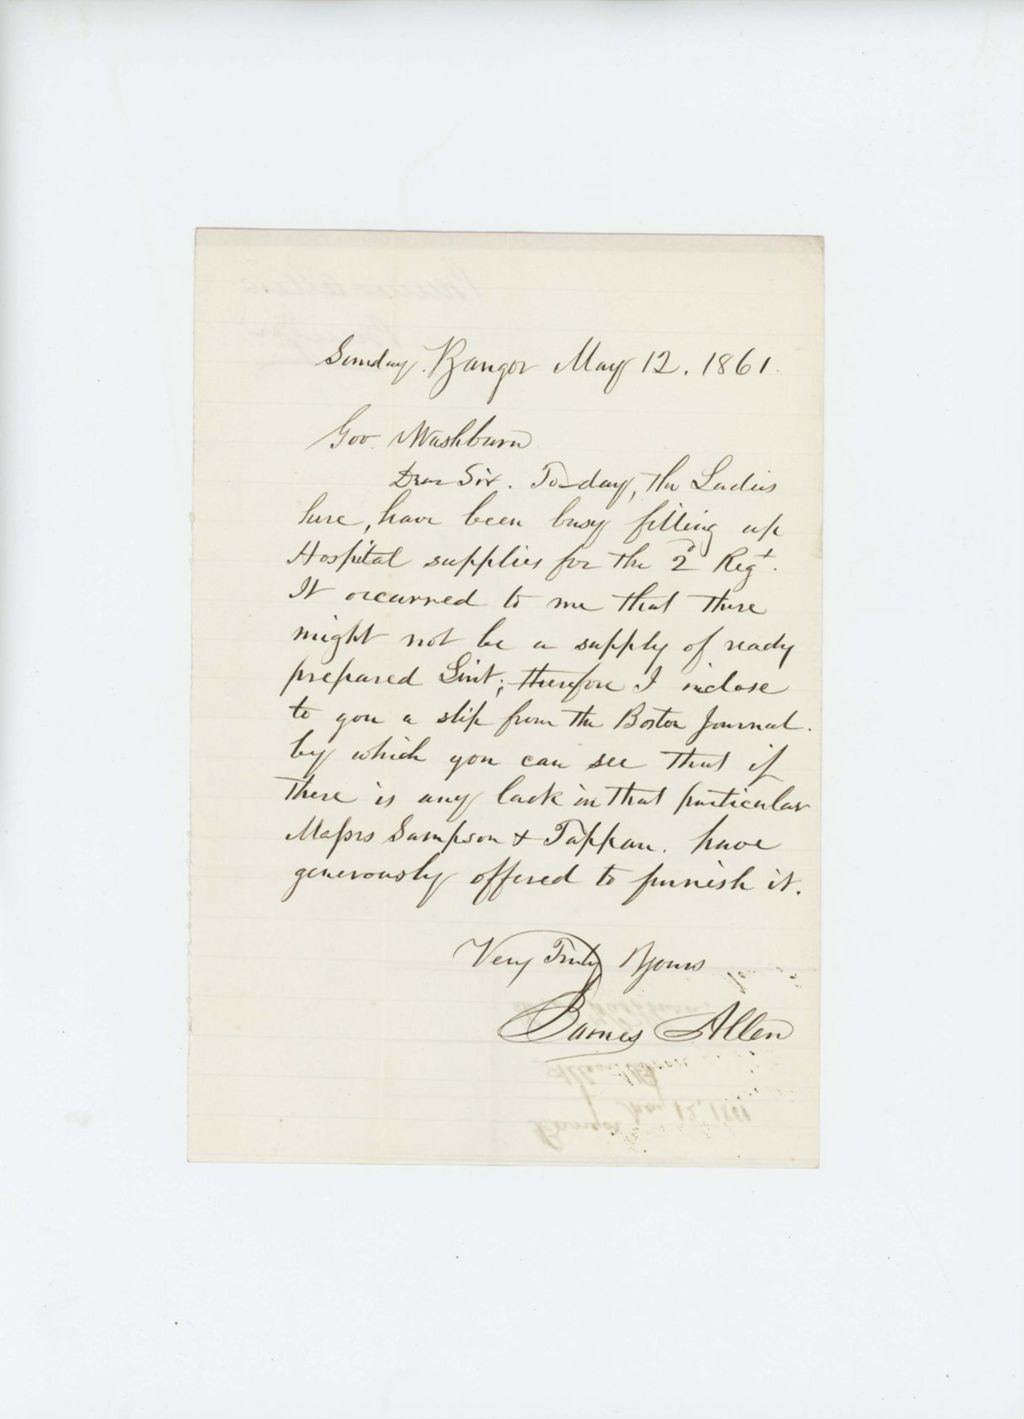 Sunday. Bangor May 12. 1861.
Gov. Washburn
Dear Sir. To-day, the Ladies
here, have been busy fitting up
Hospital supplies for the 2d Regt.
It occurred to me that there
might not be a supply of ready
prepared Lint; therefore I inclose
to you a slip from the Boston Journal.
by which you can see that if
there is any lack in that particular
Messrs Sampson & Tappan. have
generously offered to furnish it.
Very Truly Yours
Barnes Allen